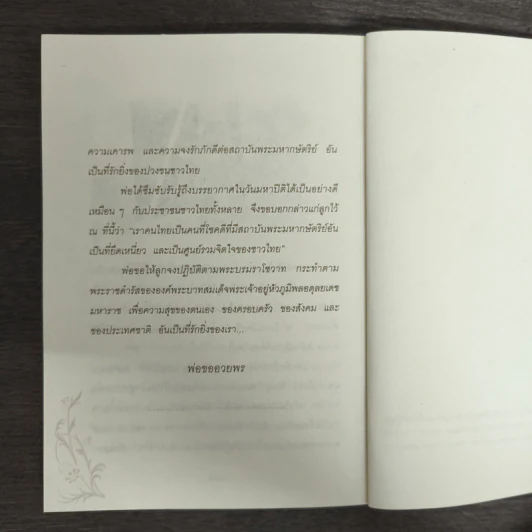 ความเคารพ และความจงรักภักดีต่อสถาบันพระมหากษัตริย์ อัน
เป็นที่รักยิ่งของปวงชนชาวไทย
พ่อได้ซึมซับรับรู้ถึงบรรยากาศในวันมหาปิติได้เป็นอย่างดี
เหมือน ๆ กับประชาชนชาวไทยทั้งหลาย จึงขอบอกกล่าวแก่ลูกไว้
ณ ที่นี้ว่า "เราคนไทยเป็นคนที่โชคดีที่มีสถาบันพระมหากษัตริย์อัน
เป็นที่ยึดเหนี่ยว และเป็นศูนย์รวมจิตใจของชาวไทย"
พ่อขอให้ลูกจงปฏิบัติตามพระบรมราโชวาท กระทำตาม
พระราชดำรัสขององค์พระบาทสมเด็จพระเจ้าอยู่หัวภูมิพลอดุลยเดช
มหาราช เพื่อความสุขของตนเอง ของครอบครัว ของสังคม และ
ของประเทศชาติ อันเป็นที่รักยิ่งของเรา...
พ่อขออวยพร